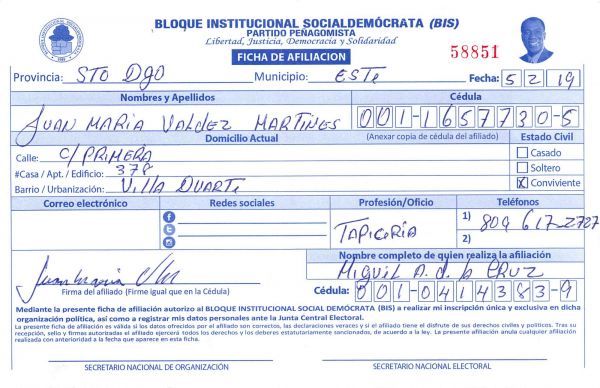 BLOQUE INSTITUCIONAL SOCIALDEMÓCRATA (BIS)
PARTIDO PEÑAGOMISTA
Libertad, Justicia, Democracia y Solidaridad
FICHA DE AFILIACION
58851
Provincia: STO Dgo Municipio: ESTE Fecha: 5 2 19
Nombres y Apellidos Cédula
JUAN MARIA VALDEZ MARTINES 001-1657730-5
Domicilio Actual (Anexar copia de cédula del afiliado) Estado Civil
Calle: C/ PRIMERA Casado
#Casa / Apt. / Edificio: 378 Soltero
Barrio / Urbanización: Villa DUARTE X Conviviente
Correo electrónico Redes sociales Profesión/Oficio Teléfonos
TAPICERÍA 1) 809 617-2727
2)
Nombre completo de quien realiza la afiliación
MIGUEL A. d. la CRUZ
Firma del afiliado (Firme igual que en la Cédula) Cédula: 001-0414383-9
Mediante la presente ficha de afiliación autorizo al BLOQUE INSTITUCIONAL SOCIAL DEMÓCRATA (BIS) a realizar mi inscripción única y exclusiva en dicha
organización política, así como a registrar mis datos personales ante la Junta Central Electoral.
La presente ficha de afiliación es válida si los datos ofrecidos por el afiliado son correctos, las declaraciones veraces y si el afiliado tiene el disfrute de sus derechos civiles y políticos. Tras su
recepción, sello y firmas autorizadas el afiliado ejercerá todos los derechos y los deberes estatutariamente sancionados, de acuerdo a la ley. La presente afiliación anula cualquier afiliación
realizada con anterioridad a la fecha que aparece en esta ficha.
SECRETARIO NACIONAL DE ORGANIZACIÓN SECRETARIO NACIONAL ELECTORAL